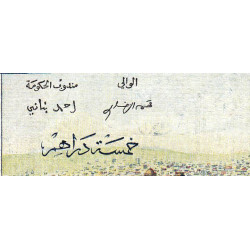 الوالي مندوب الحكومة
احمد بناني
خمسة دراهم